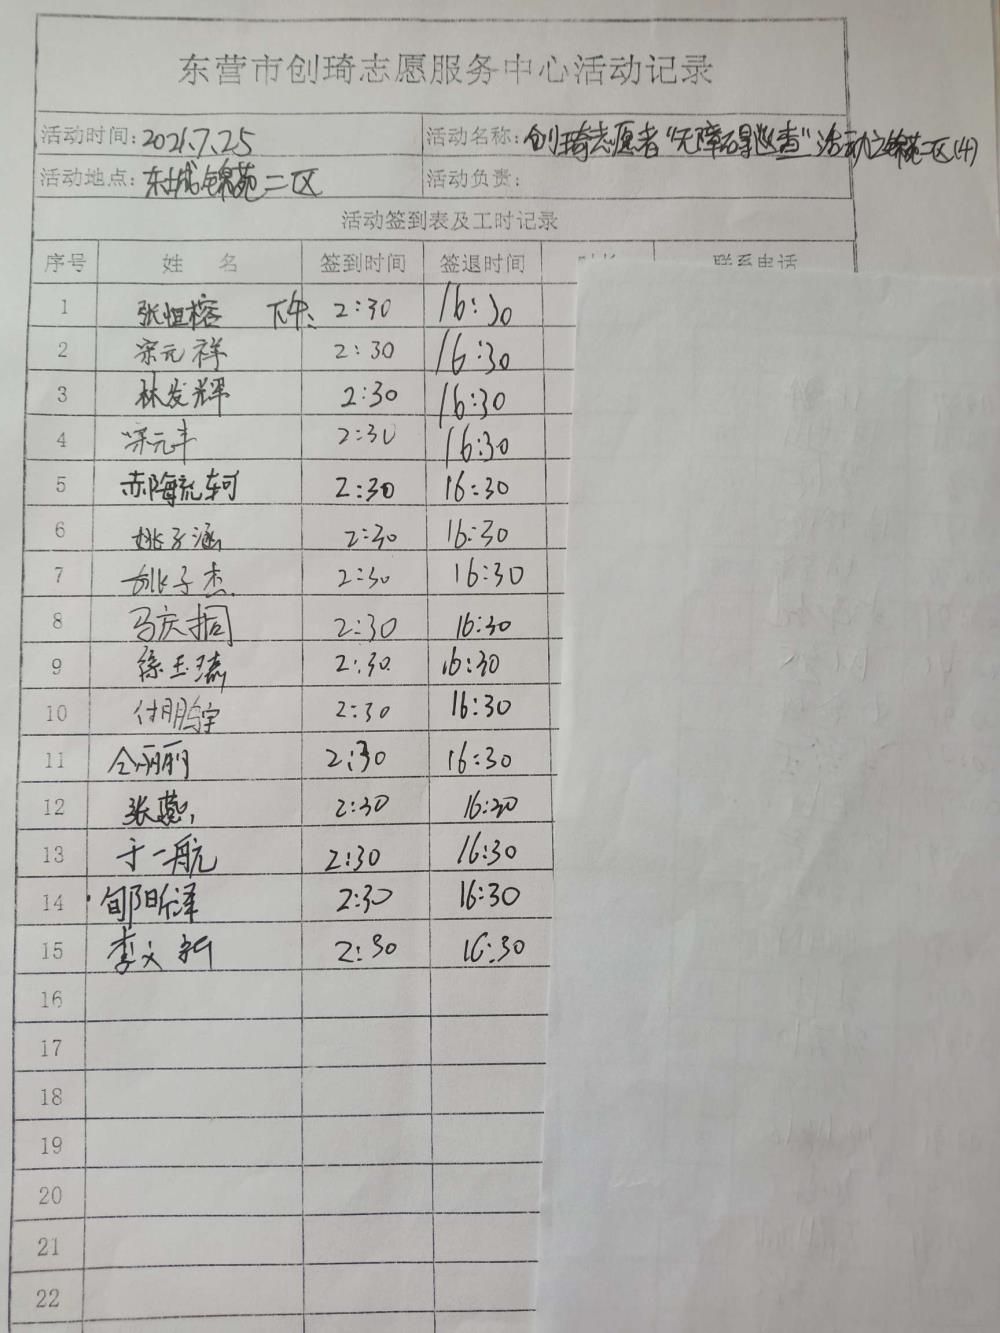 东营市创琦志愿服务中心活动记录
活动时间: 2021.7.25 活动名称: 创琦志愿者"无障碍巡查"活动之锦苑二区(4)
活动地点: 东城锦苑二区 活动负责:
活动签到表及工时记录
序号 姓 名 签到时间 签退时间 时长 联系电话
1 张恒榕 下午: 2:30 16:30
2 宗元祥 2:30 16:30
3 林发辉 2:30 16:30
4 宗元丰 2:30 16:30
5 2:30 16:30
6 姚子涵 2:30 16:30
7 姚子杰 2:30 16:30
8 马庆 2:30 16:30
9 徐玉 2:30 16:30
10 付鹏宇 2:30 16:30
11 仝丽丽 2:30 16:30
12 张 2:30 16:30
13 于一航 2:30 16:30
14 2:30 16:30
15 李文 2:30 16:30
16
17
18
19
20
21
22